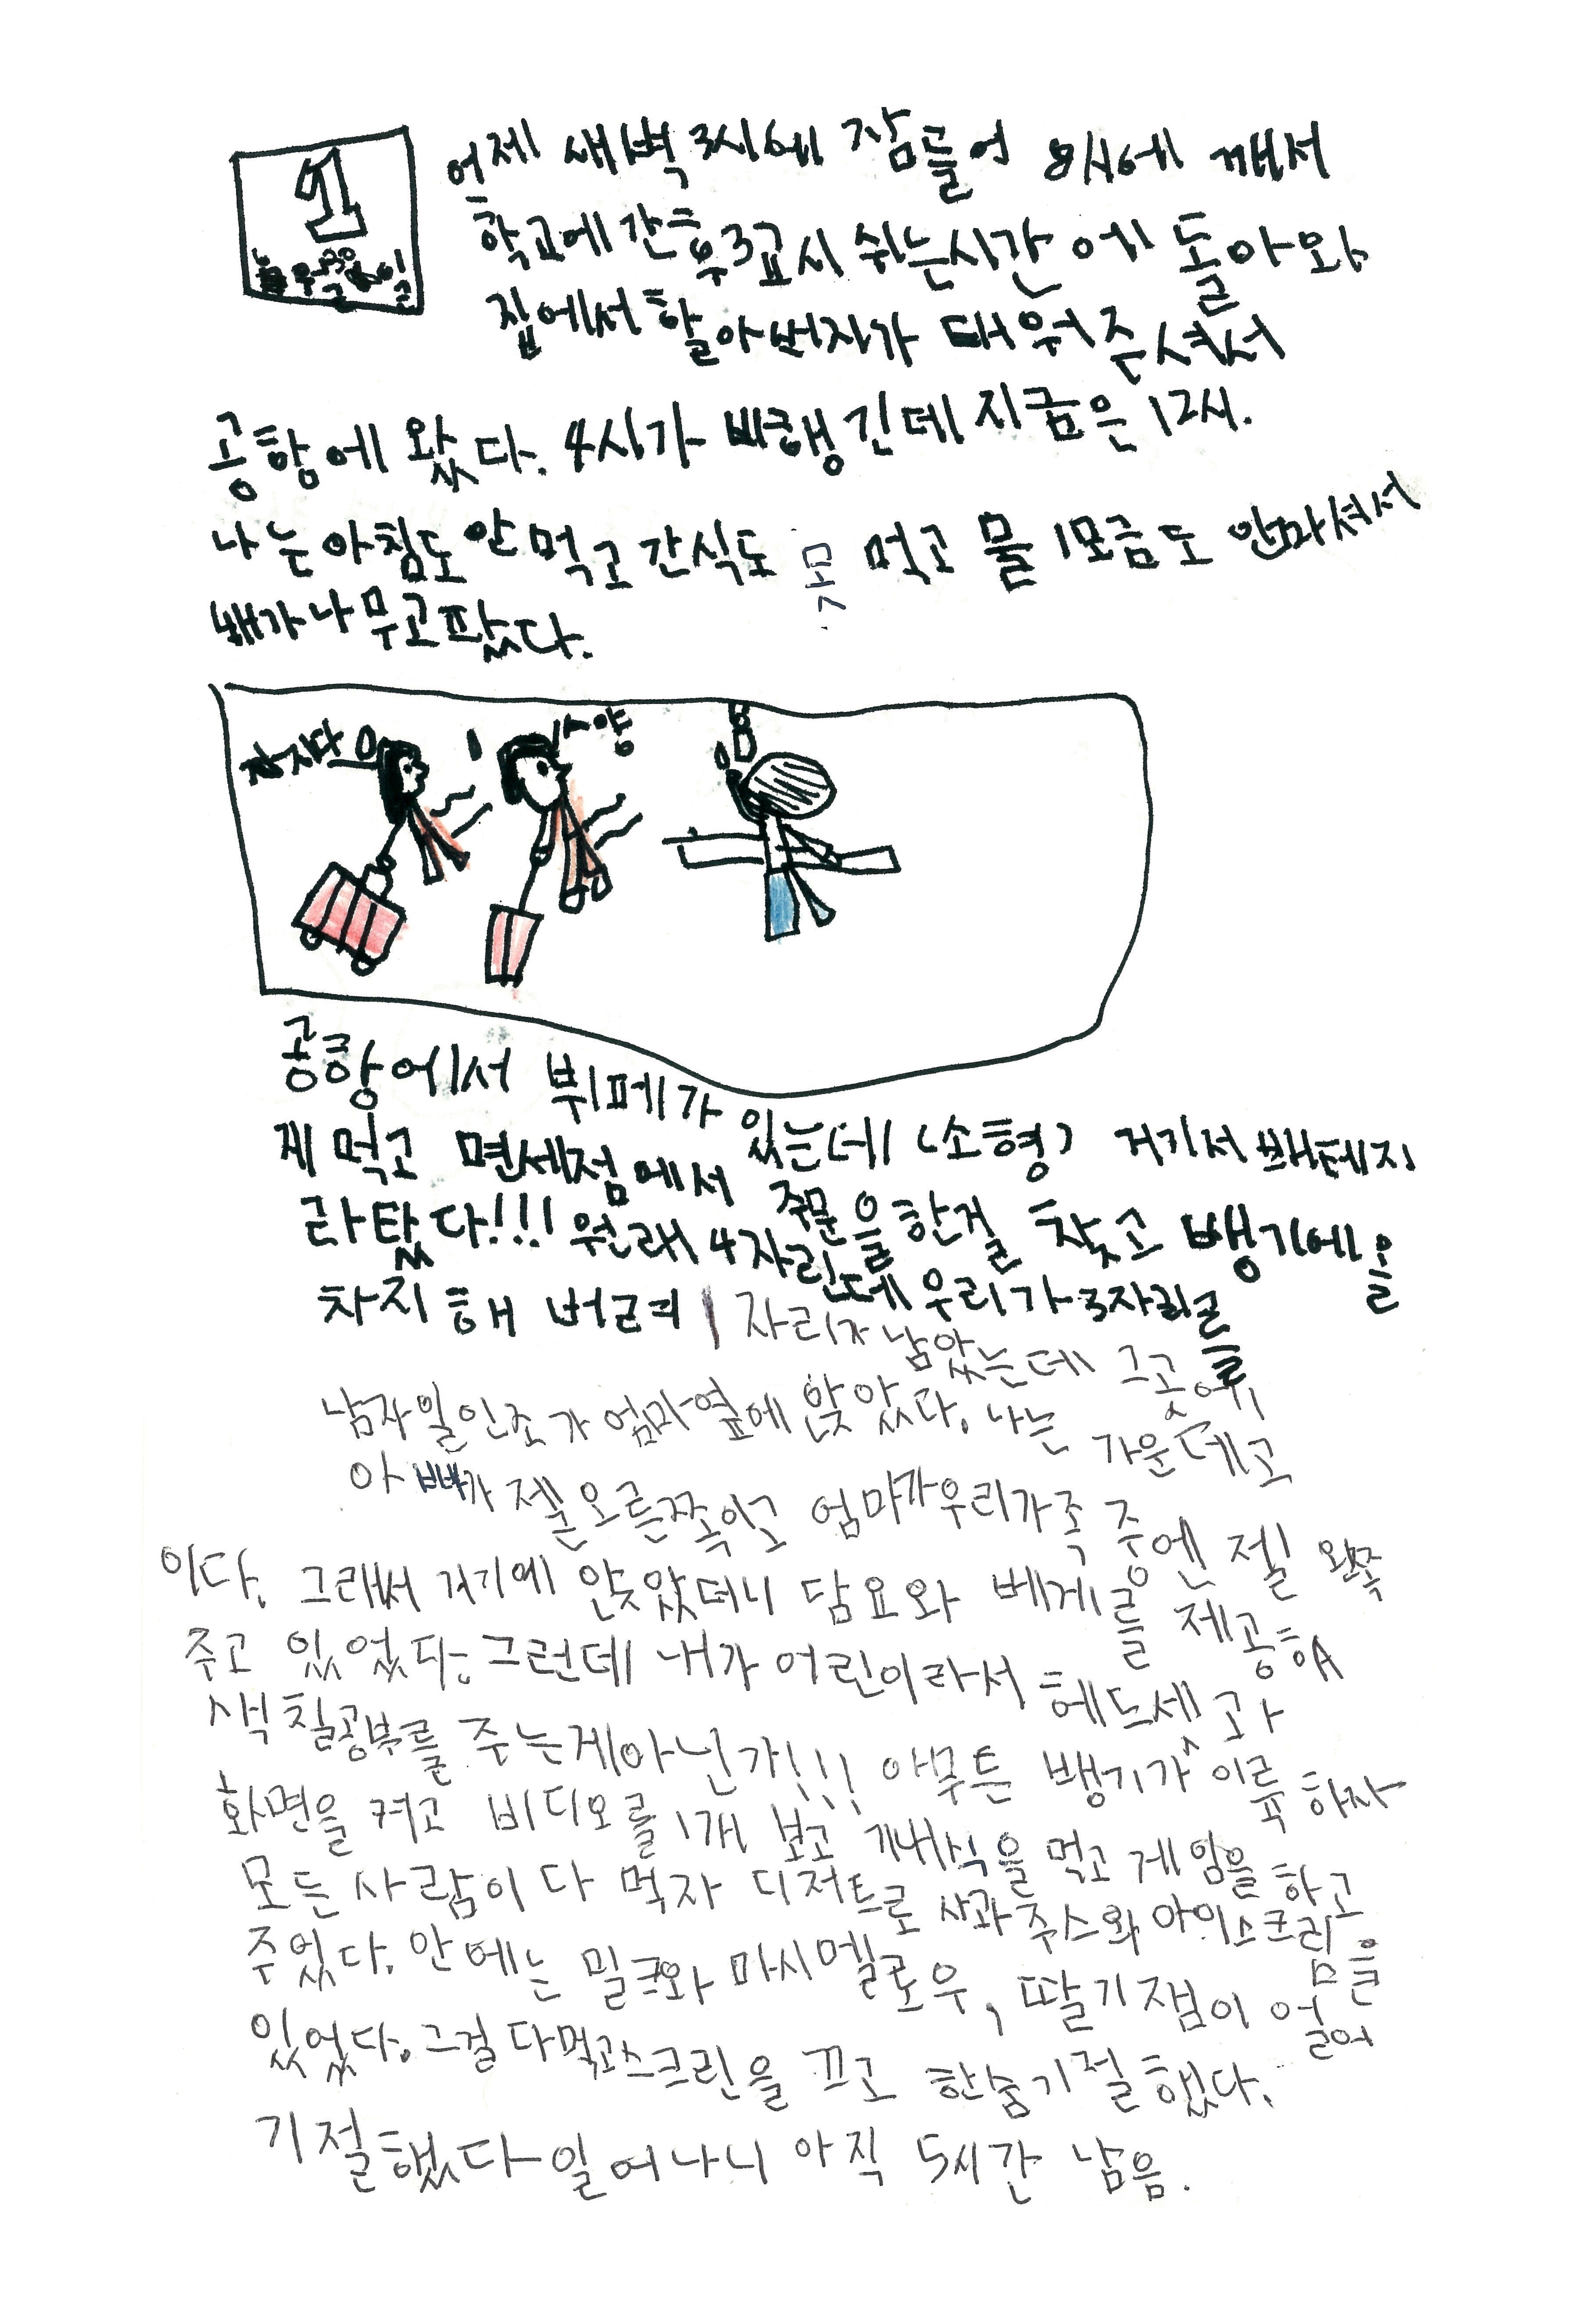 1
어제 새벽 3시에 잠들어 8시에 깨서
학교에 간 후 3교시 쉬는시간에 돌아와
집에서 할아버지가 태워주셔서
공항에 왔다. 4시가 비행긴데 지금은 12시.
나는 아침도 안 먹고 간식도 못 먹고 물 1모금도 안마셔서
배가 너무 고팠다.
공항에서 뷔페가 있는데 (소형) 거기서 빼테지
게 먹고 면세점에서 주문을 한걸 찾고 뱅기에 올
라탔다!!! 원래 4자린데 우리가 3자리를
차지해 버려 1자리가 남았는데 그곳에
남자 일인조가 엄마옆에 앉았다. 나는 가운데고
아빠가 젤 오른쪽이고 엄마가 우리가족 중엔 젤 왼쪽
이다. 그래서 거기에 앉았더니 담요와 베게를 제공해
주고 있었다. 그런데 내가 어린이라서 헤드셋과
색칠공부를 주는게아닌가!!! 아무튼 뱅기가 이륙하자
화면을 켜고 비디오를 1개 보고 기내식을 먹고 게임을 하고
모든 사람이 다 먹자 디저트로 사과주스와 아이스크림을
주었다. 안에는 밀크와 마시멜로우, 딸기잼이 얼어
있었다. 그걸 다먹고 스크린을 끄고 한숨 기절했다.
기절했다 일어나니 아직 5시간 남음.